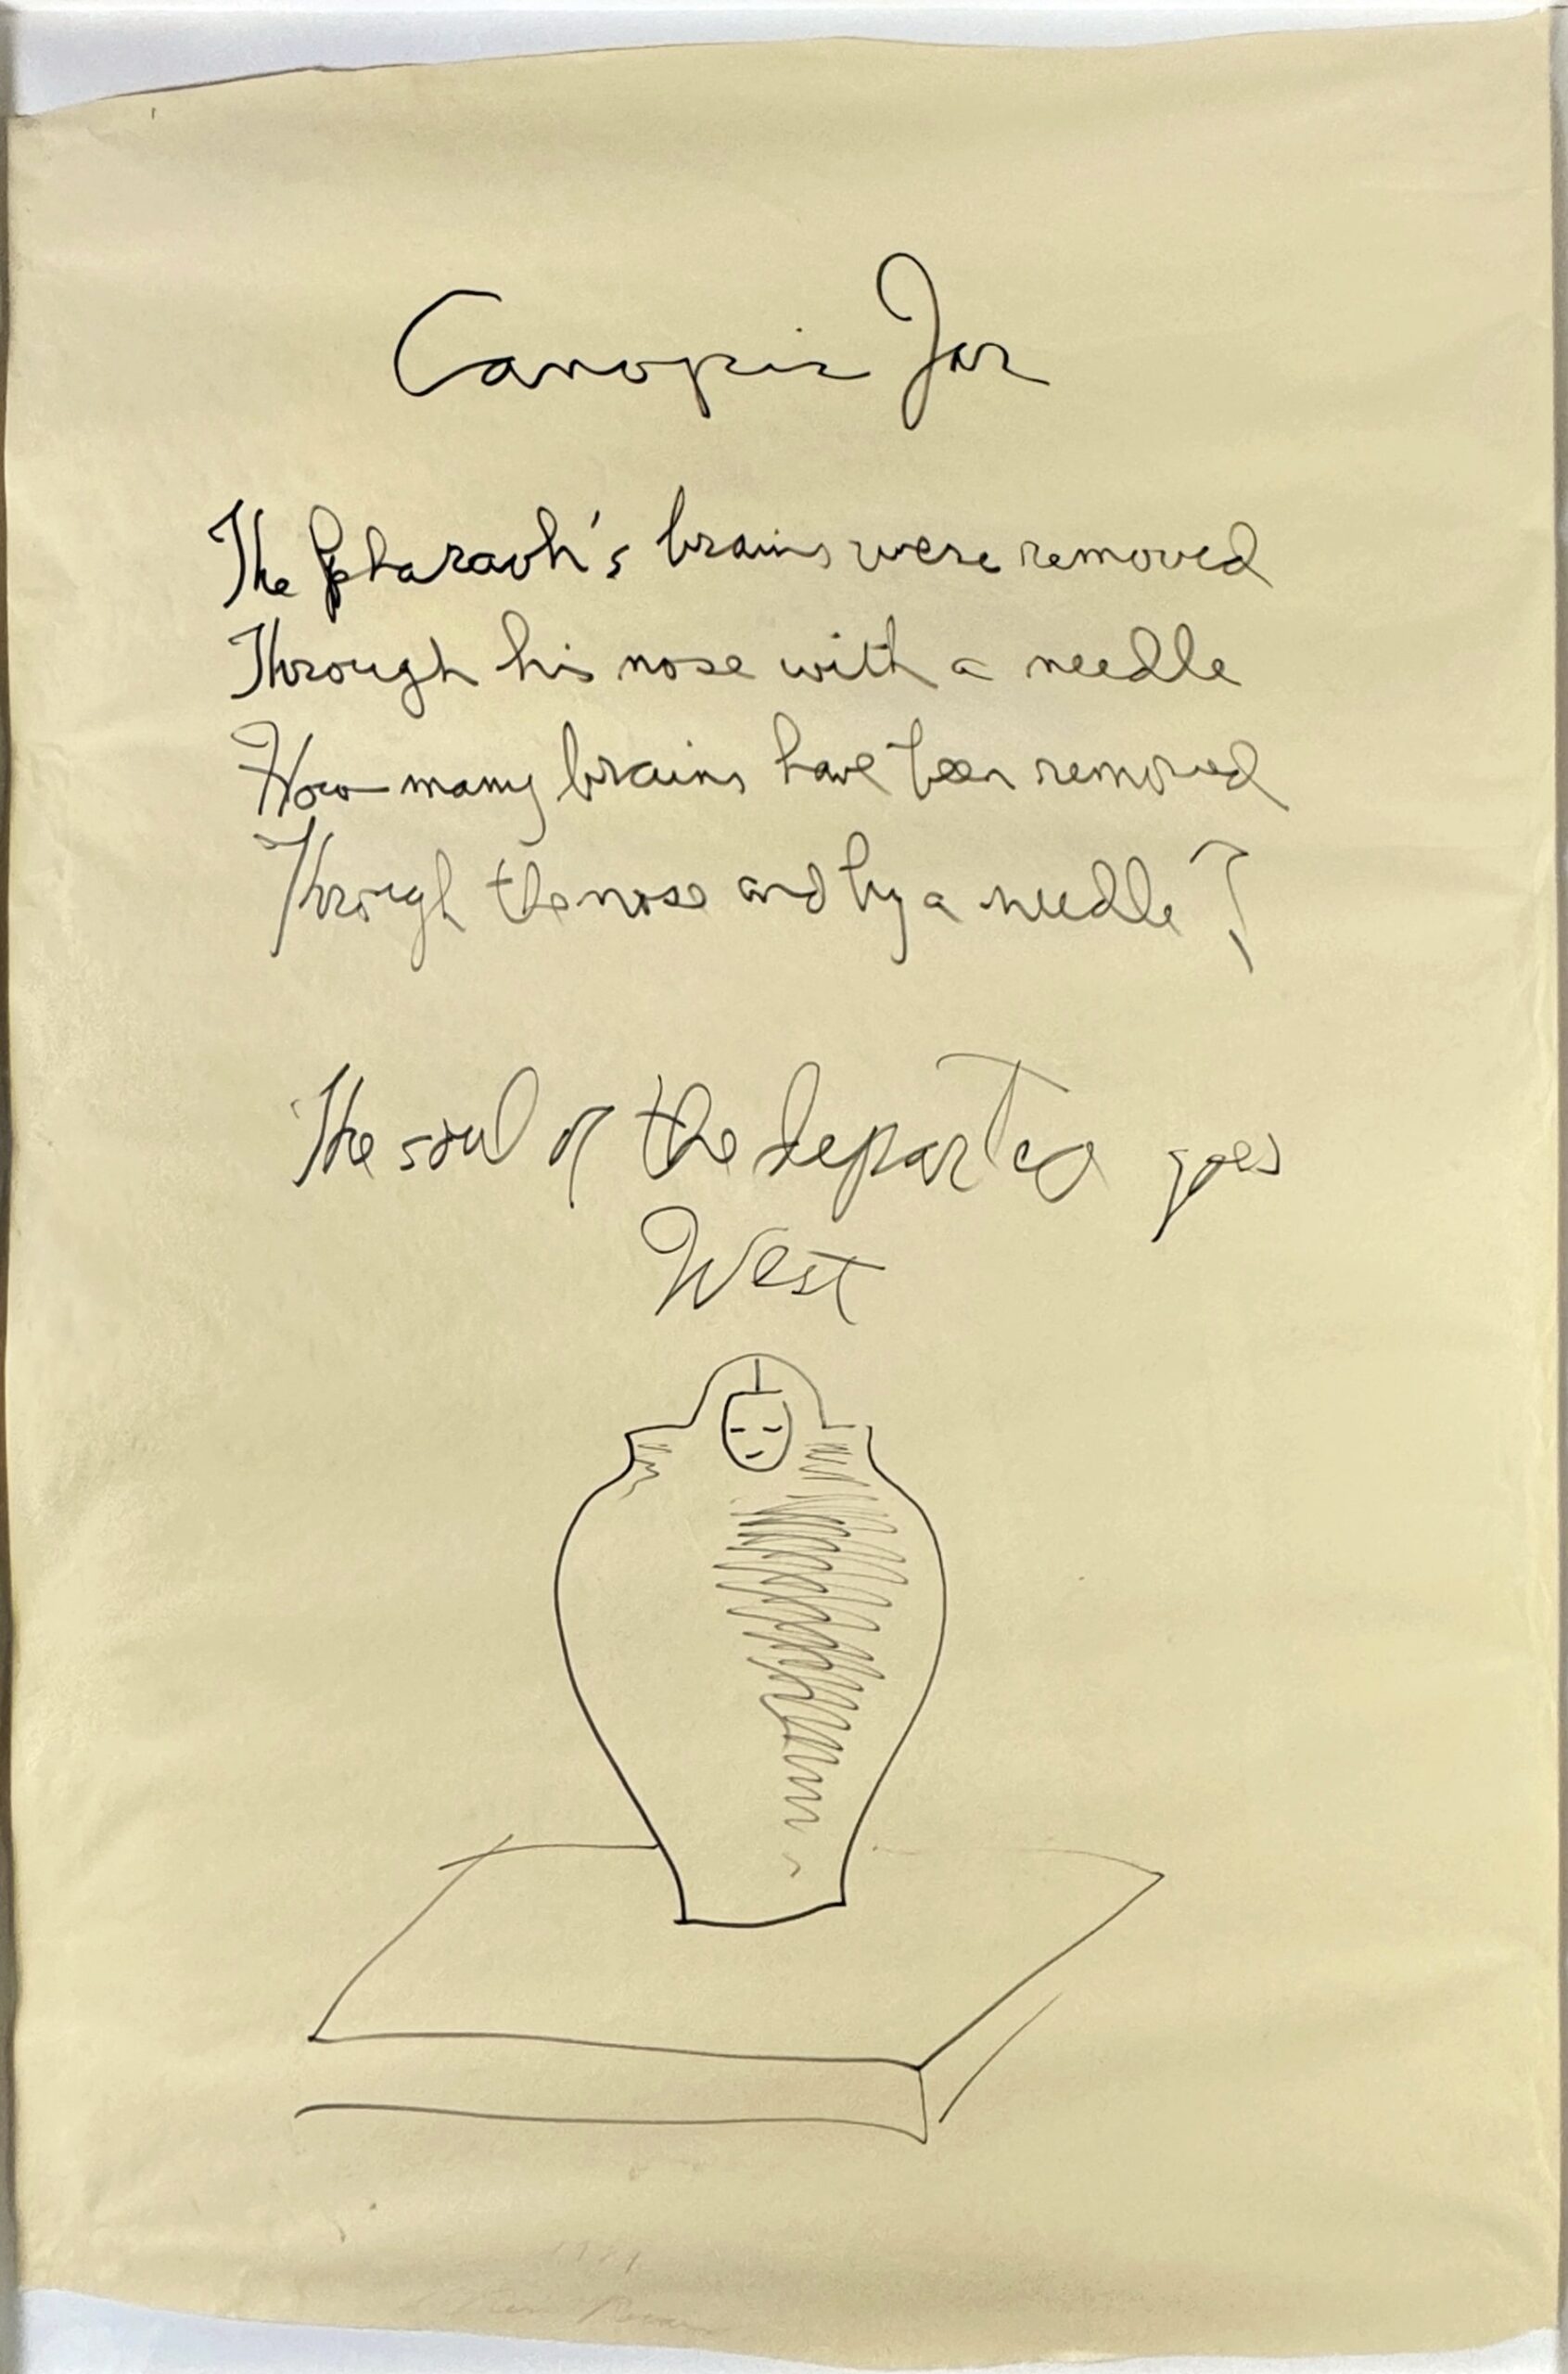 Canopic Jar
The Pharaoh's brains were removed
Through his nose with a needle
How many brains have been removed
Through the nose and by a needle?
The soul of the departed goes
West